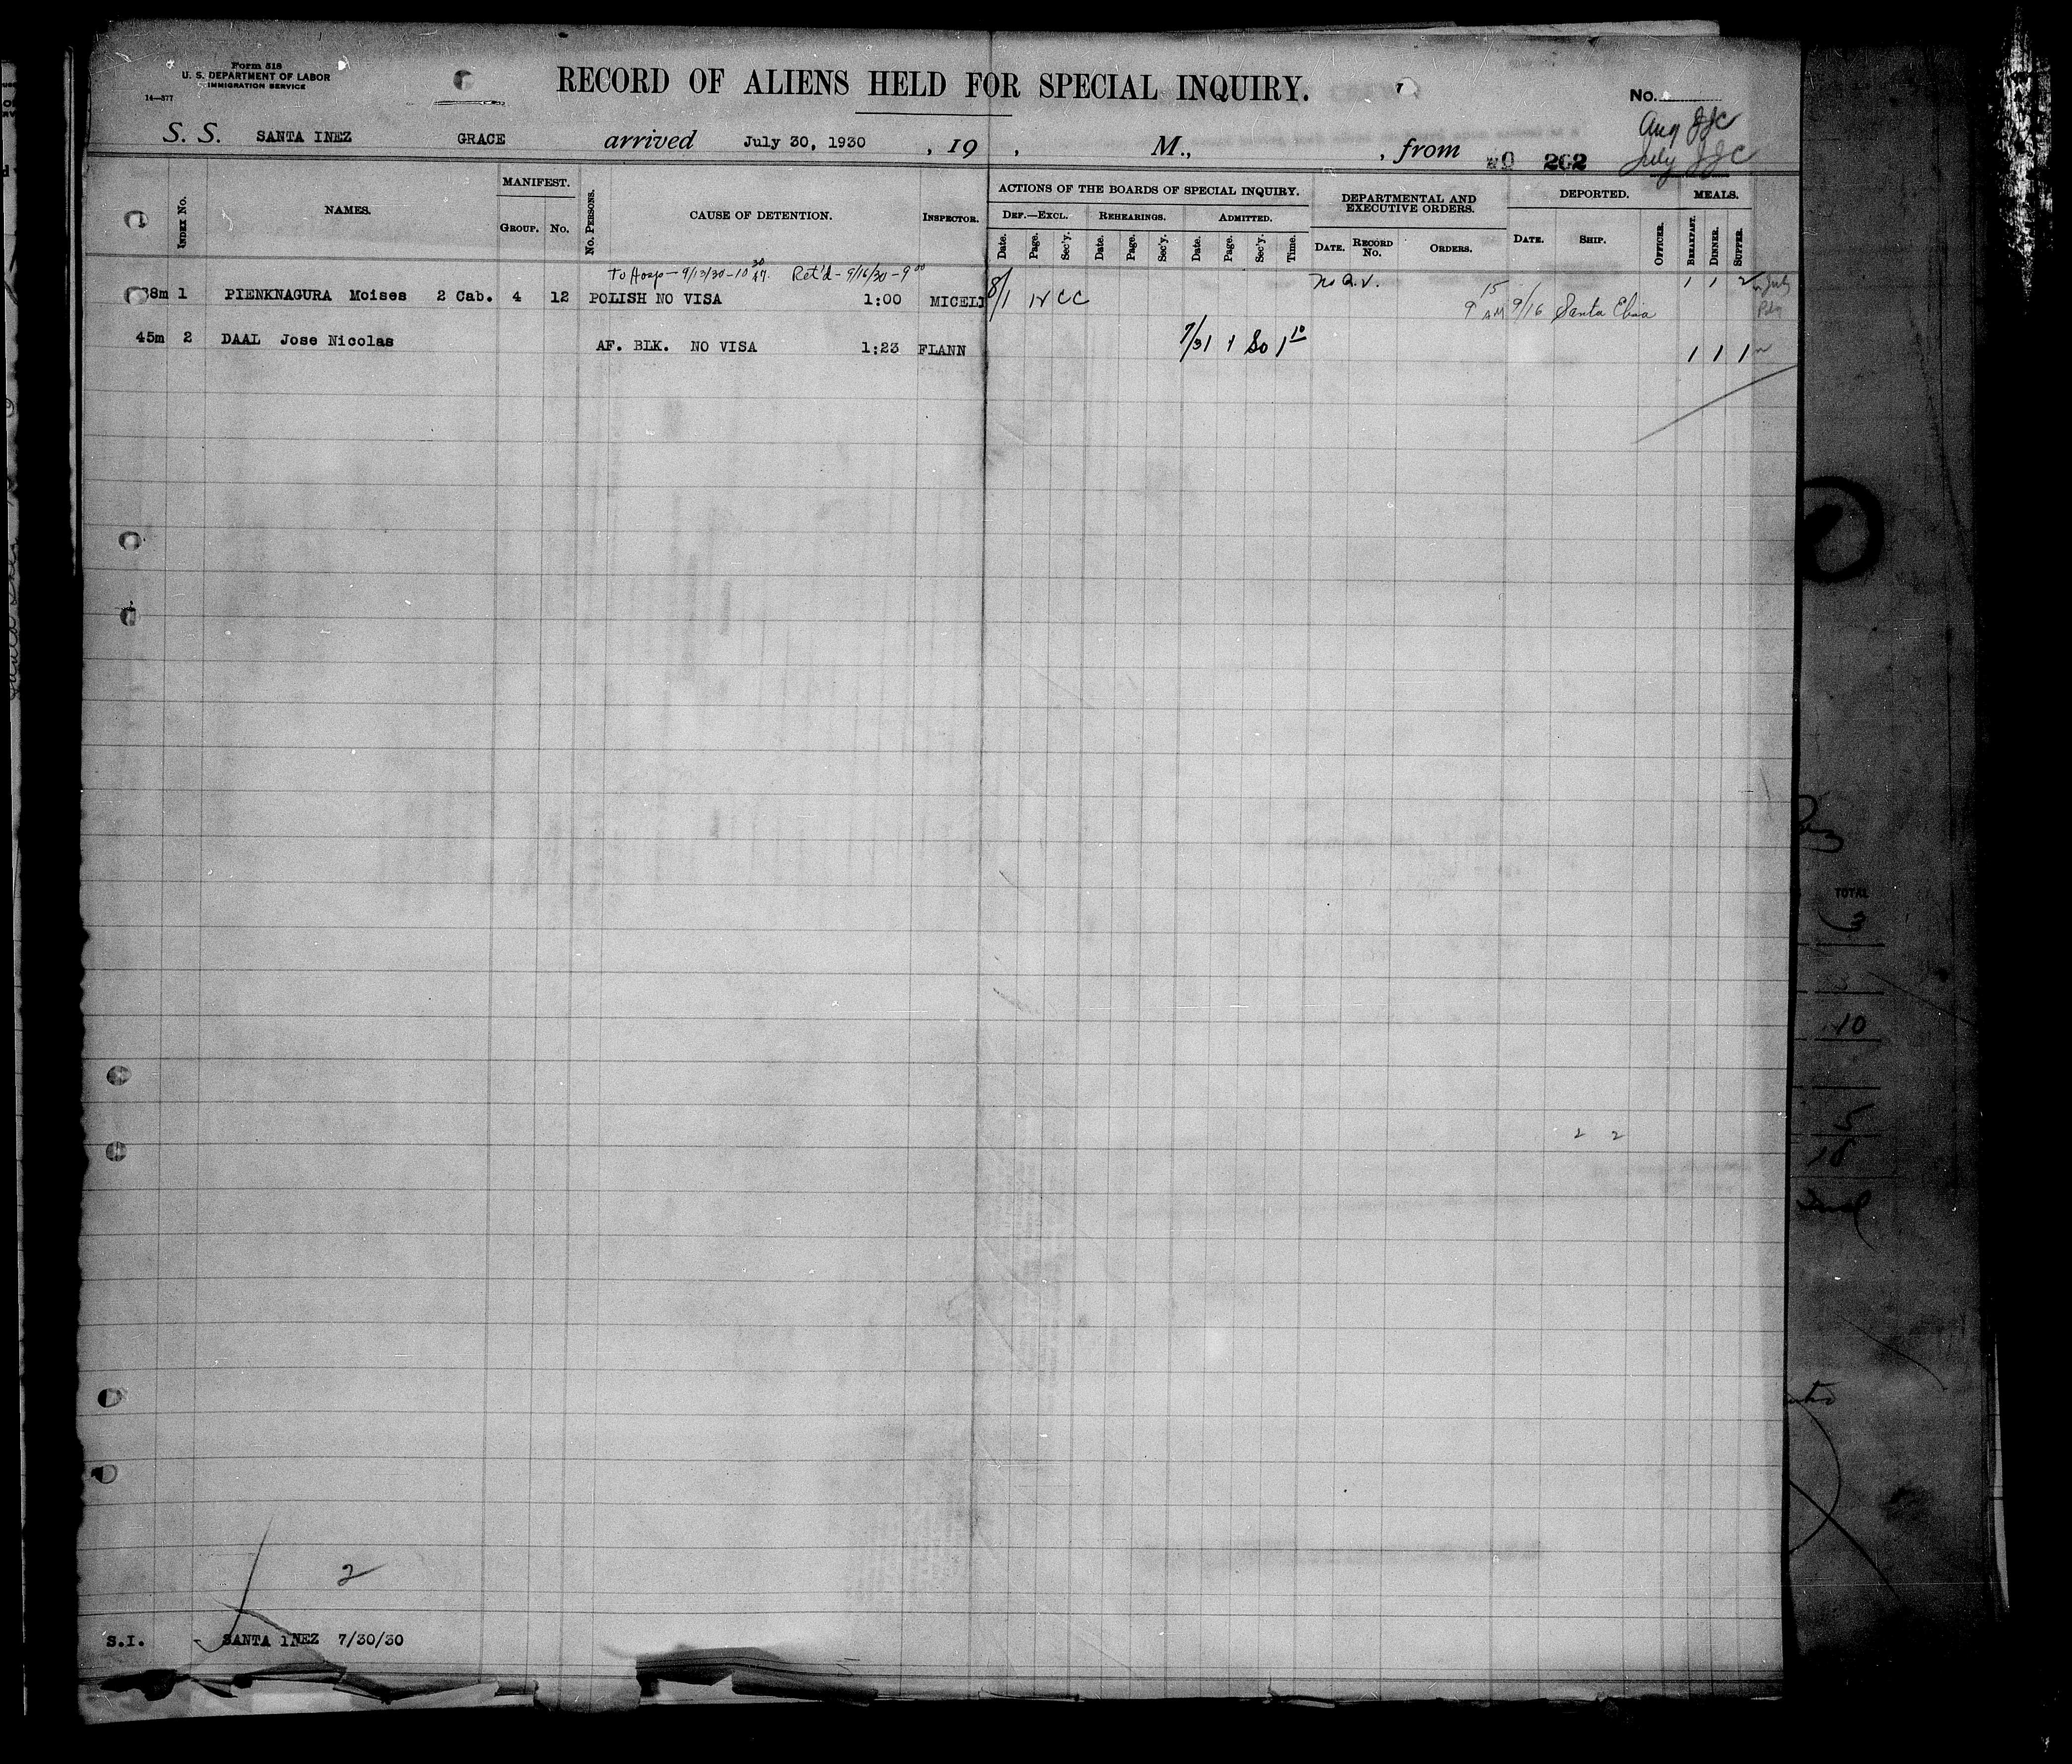 Form 518
U. S. DEPARTMENT OF LABOR
IMMIGRATION SERVICE
14—577
RECORD OF ALIENS HELD FOR SPECIAL INQUIRY.
No.
Aug JJC
S. S. SANTA INEZ GRACE arrived July 30, 1930 , 19 , M., , from 202 July JJC
INDEX No. NAMES. MANIFEST. GROUP. No. No. PERSONS. CAUSE OF DETENTION. INSPECTOR.
ACTIONS OF THE BOARDS OF SPECIAL INQUIRY. DEF.—EXCL. Date. Page. Sec'y. REHEARINGS. Date. Page. Sec'y. ADMITTED. Date. Page. Sec'y. Time.
DEPARTMENTAL AND EXECUTIVE ORDERS. DATE. RECORD No. ORDERS.
DEPORTED. DATE. SHIP. OFFICER. MEALS. BREAKFAST. DINNER. SUPPER.
To Hosp - 9/13/30 - 10 30 Ret'd - 9/16/30 - 9 00
38m 1 PIENKNAGURA Moises 2 Cab. 4 12 POLISH NO VISA 1:00 MICELI 8/1 CC 9 15 AM 9/16 Santa 1 1 2 July
45m 2 DAAL Jose Nicolas AF. BLK. NO VISA 1:23 FLANN 7/31 1 So 1 10 1 1 1
TOTAL
3
10
2 2
18
2
S.I. SANTA INEZ 7/30/30